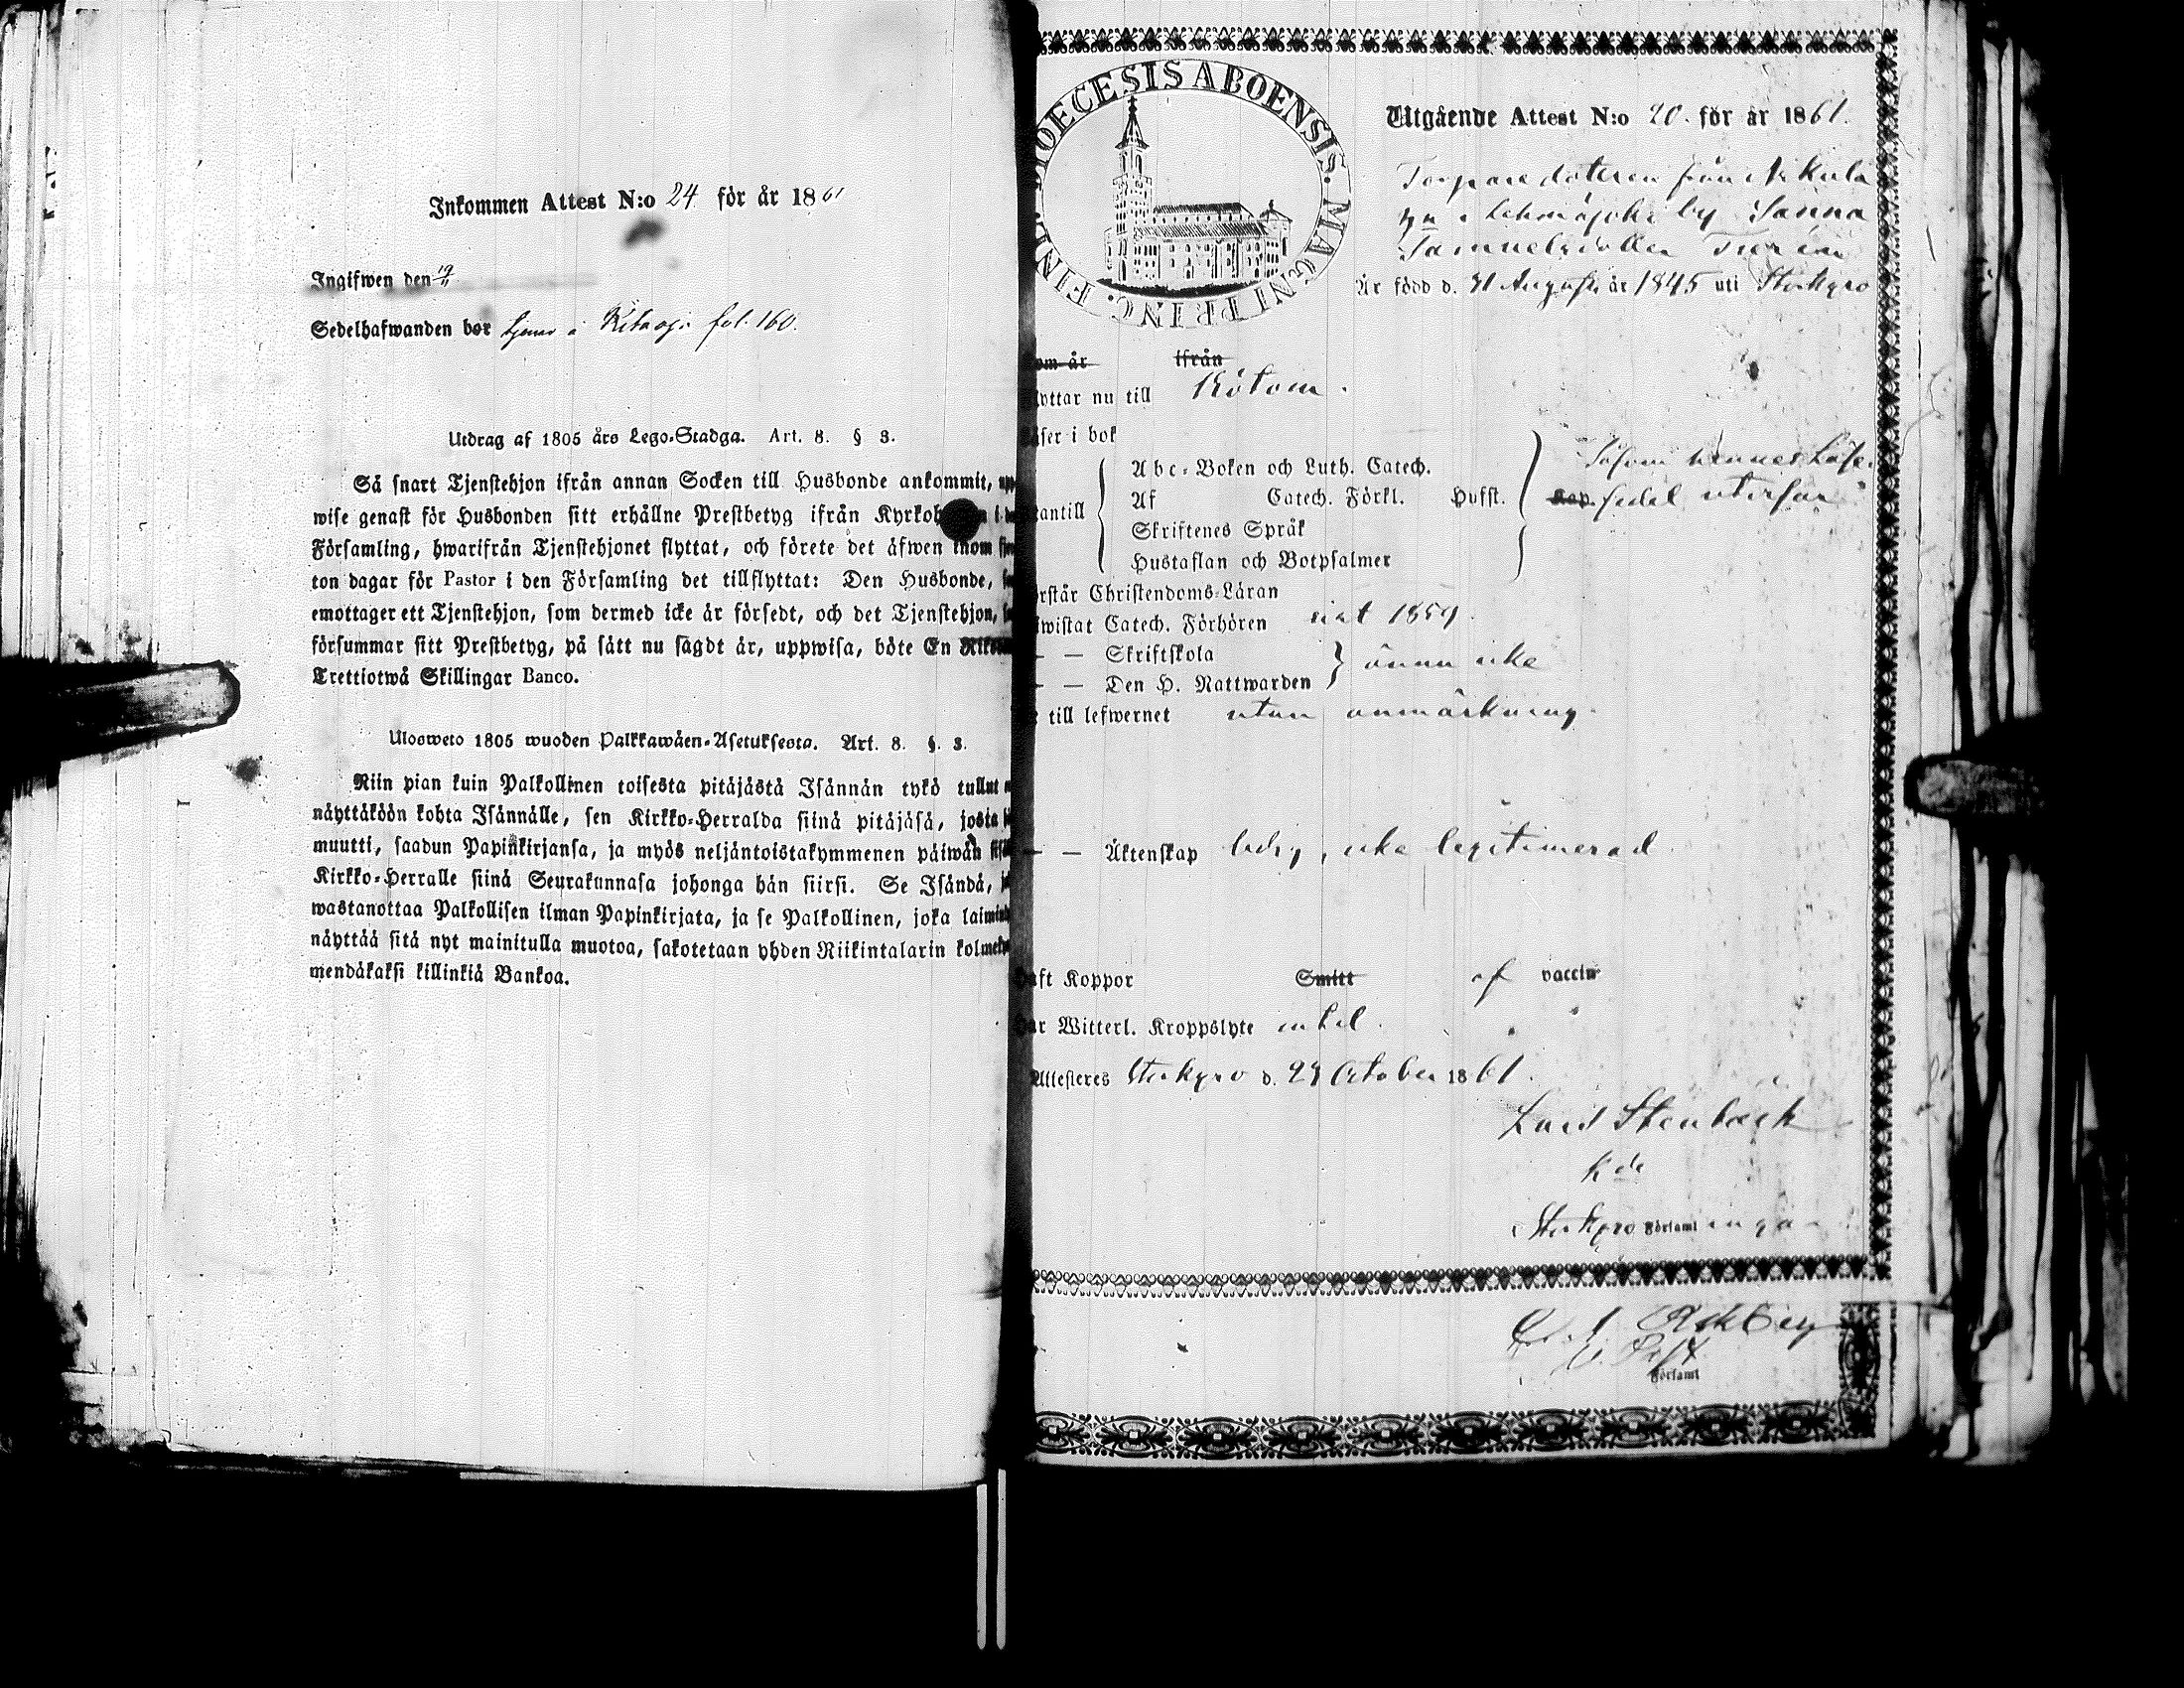 Inkommen Attest N:o 24 för år 1861
Ingifwen den 19/11
Sedelhafwanden bor tjenar å fol. 160.
Utdrag af 1805 års Lego-Stadga. Art. 8. § 3.
Så snart Tjenstehjon ifrån annan Socken till Husbonde ankommit,
wise genast för Husbonden sitt erhållne Prestbetyg ifrån
Församling, hwarifrån Tjenstehjonet flyttat, och förete det äfwen inom
ton dagar för Pastor i den Församling det tillflyttat: Den Husbonde,
emottager ett Tjenstehjon, som dermed icke är försedt, och det Tjenstehjon,
försummar sitt Prestbetyg, på sätt nu sagdt är, uppwisa, böte En
Trettiotwå Skillingar Banco.
Ulosweto 1805 wuoden Palkkawäen-Asetuksesta. Art. 8. §. 3.
Niin pian kuin Palkollinen toisesta pitäjästä Isännän tykö tullut
näyttäköön kohta Isännälle, sen Kirkko-Herralda siinä pitäjäsä, josta
muutti, saadun Papinkirjansa, ja myös neljäntoistakymmenen päiwän
Kirkko-Herralle siinä Seurakunnasa johonga hän siirsi. Se Isändä,
wastanottaa Palkollisen ilman Papinkirjata, ja se Palkollinen, joka
näyttää sitä nyt mainitulla muotoa, sakotetaan yhden Riikintalarin
mendäkaksi killinkiä Bankoa.
DIOECESIS ABOENSIS. MAGNI PRINC. FINL.
Utgående Attest N:o 20. för år 1861.
Torpare dottren från
by Sanna
Samuelsdotter
Är född d. 31 Augusti år 1845 uti Storkyro
om år ifrån
yttar nu till Rötom.
äser i bok
Abc-Boken och Luth. Catech.
Såsom hennes Läse-
antill Af Catech. Förkl. Husst. Kap. sedel utvisar
Skriftenes Språk
Hustaflan och Botpsalmer
rstår Christendoms-Läran
wistat Catech. Förhören sist 1859.
— — Skriftskola
ännu icke
— — Den H. Nattwarden
till lefwernet utan anmärkning.
— — Äktenskap ledig, icke legitimerad.
aft Koppor Smitt af vaccin
ar Witterl. Kroppslyte
Attesteres Storkyro d. 29 October 1861.
Stenbäck
Kde
Storkyro Församl
Församl